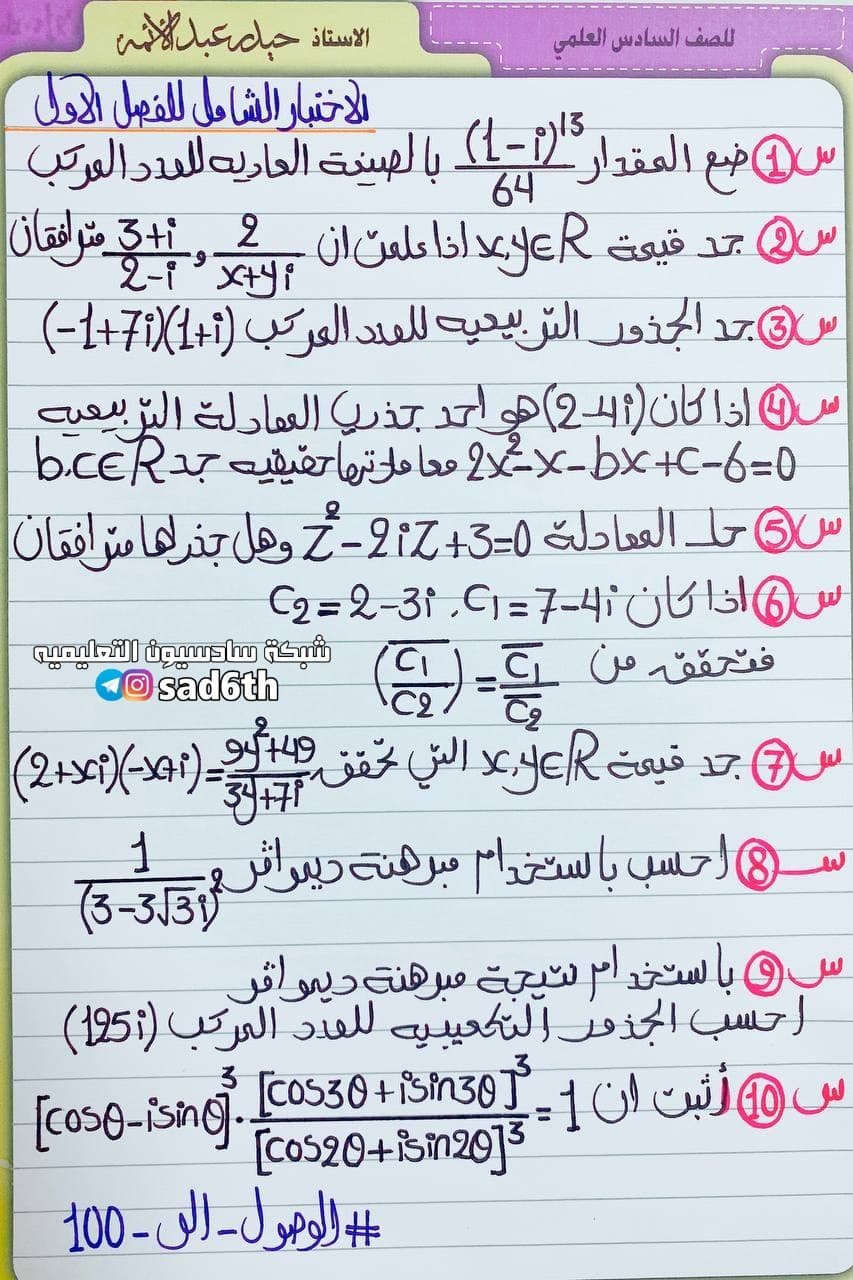 للصف السادس العلمي
الاستاذ حيدر عبد الأئمة
الاختبار الشامل للفصل الاول
س1 ضع المقدار (1-i)^13/64 بالصيغة العاديه للعدد المركب
س2 جد قيمة x,y∈R اذا علمت ان 2/(x+yi) و (3+i)/(2-i) مترافقان
س3 جد الجذور التربيعيه للعدد المركب (-1+7i)(1+i)
س4 اذا كان (2-4i) هو احد جذري المعادلة التربيعيه
2x²-x-bx+c-6=0 معاملاتها حقيقيه جد b,c∈R
س5 حل المعادلة Z²-2iZ+3=0 وهل جذراها مترافقان
س6 اذا كان C₁=7-4i , C₂=2-3i
فتحقق من \overline{(C₁/C₂)} = \overline{C₁}/\overline{C₂}
شبكة سادسيون التعليميه
sad6th
س7 جد قيمة x,y∈R التي تحقق (2+xi)(-x+i)=(9y²+49)/(3y+7i)
س8 احسب باستخدام مبرهنة ديموافر 1/(3-3√3i)²
س9 باستخدام نتيجة مبرهنة ديموافر
احسب الجذور التكعيبيه للعدد المركب (125i)
س10 أثبت ان [cosθ-isinθ]³·[cos3θ+isin3θ]³/[cos2θ+isin2θ]³=1
#الوصول-الى-100